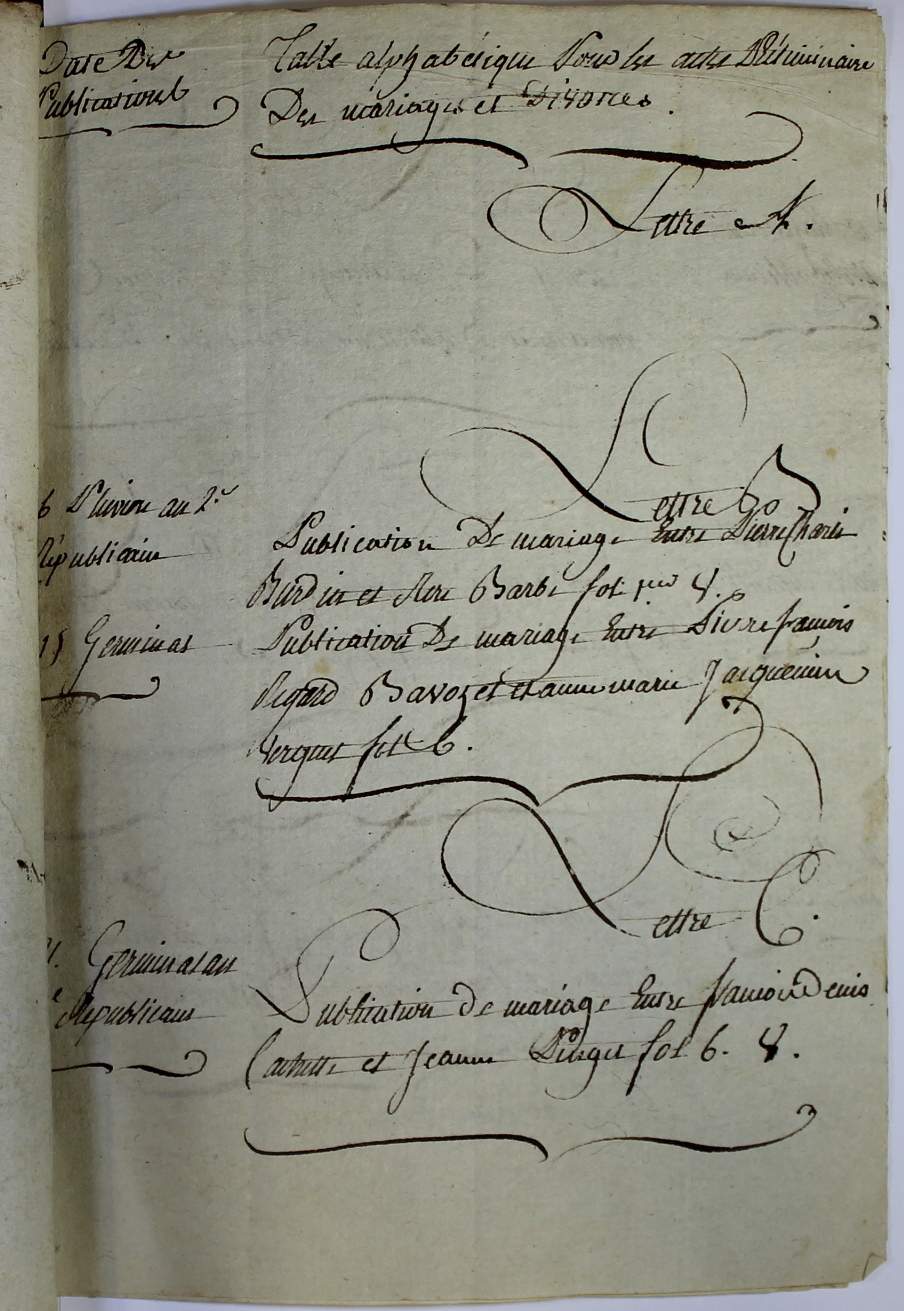 Date Des
Publications
Table alphabétique Pour les actes Préliminaire
Des mariages et Divorces.
Lettre A.
Lettre B
6 Pluviose au 2.e
Républicain
Publication De mariage Entre Pierre Charle
Burdin et Barbe fol
15 Germinal
Publication De mariage Entre Pierre françois
Regard Bavozet et anne marie Jacquemine
fol 6.
Lettre C.
Germinal an
Républicain
Publication de mariage Entre françois denis
Cachette et Jeanne fol 6. 8.